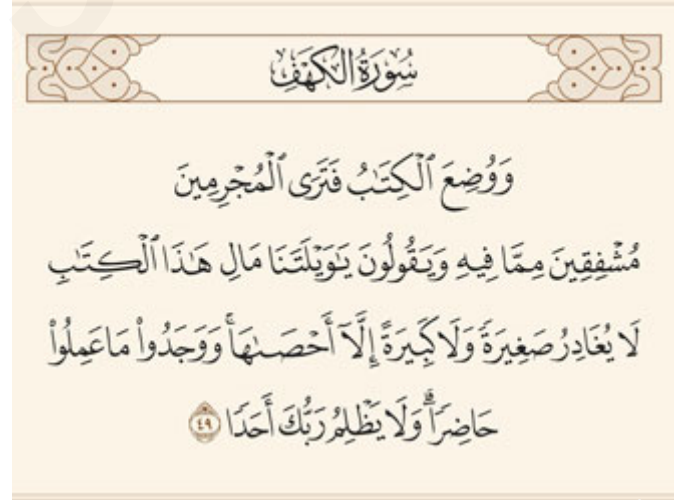 سُورَةُ الكَهْفِ
وَوُضِعَ ٱلْكِتَٰبُ فَتَرَى ٱلْمُجْرِمِينَ
مُشْفِقِينَ مِمَّا فِيهِ وَيَقُولُونَ يَٰوَيْلَتَنَا مَالِ هَٰذَا ٱلْكِتَٰبِ
لَا يُغَادِرُ صَغِيرَةً وَلَا كَبِيرَةً إِلَّآ أَحْصَىٰهَاۚ وَوَجَدُوا۟ مَا عَمِلُوا۟
حَاضِرًاۗ وَلَا يَظْلِمُ رَبُّكَ أَحَدًا ٤٩